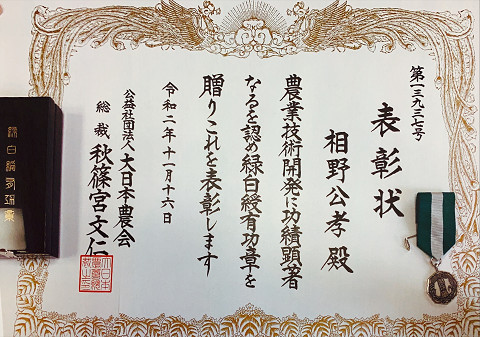 第一三九三七号
表彰状
相野公孝殿
農業技術開発に功績顕著
なるを認め緑白綬有功章を
贈りこれを表彰します
令和二年十一月十六日
公益社団法人大日本農会
総裁 秋篠宮文仁
緑白綬有功章